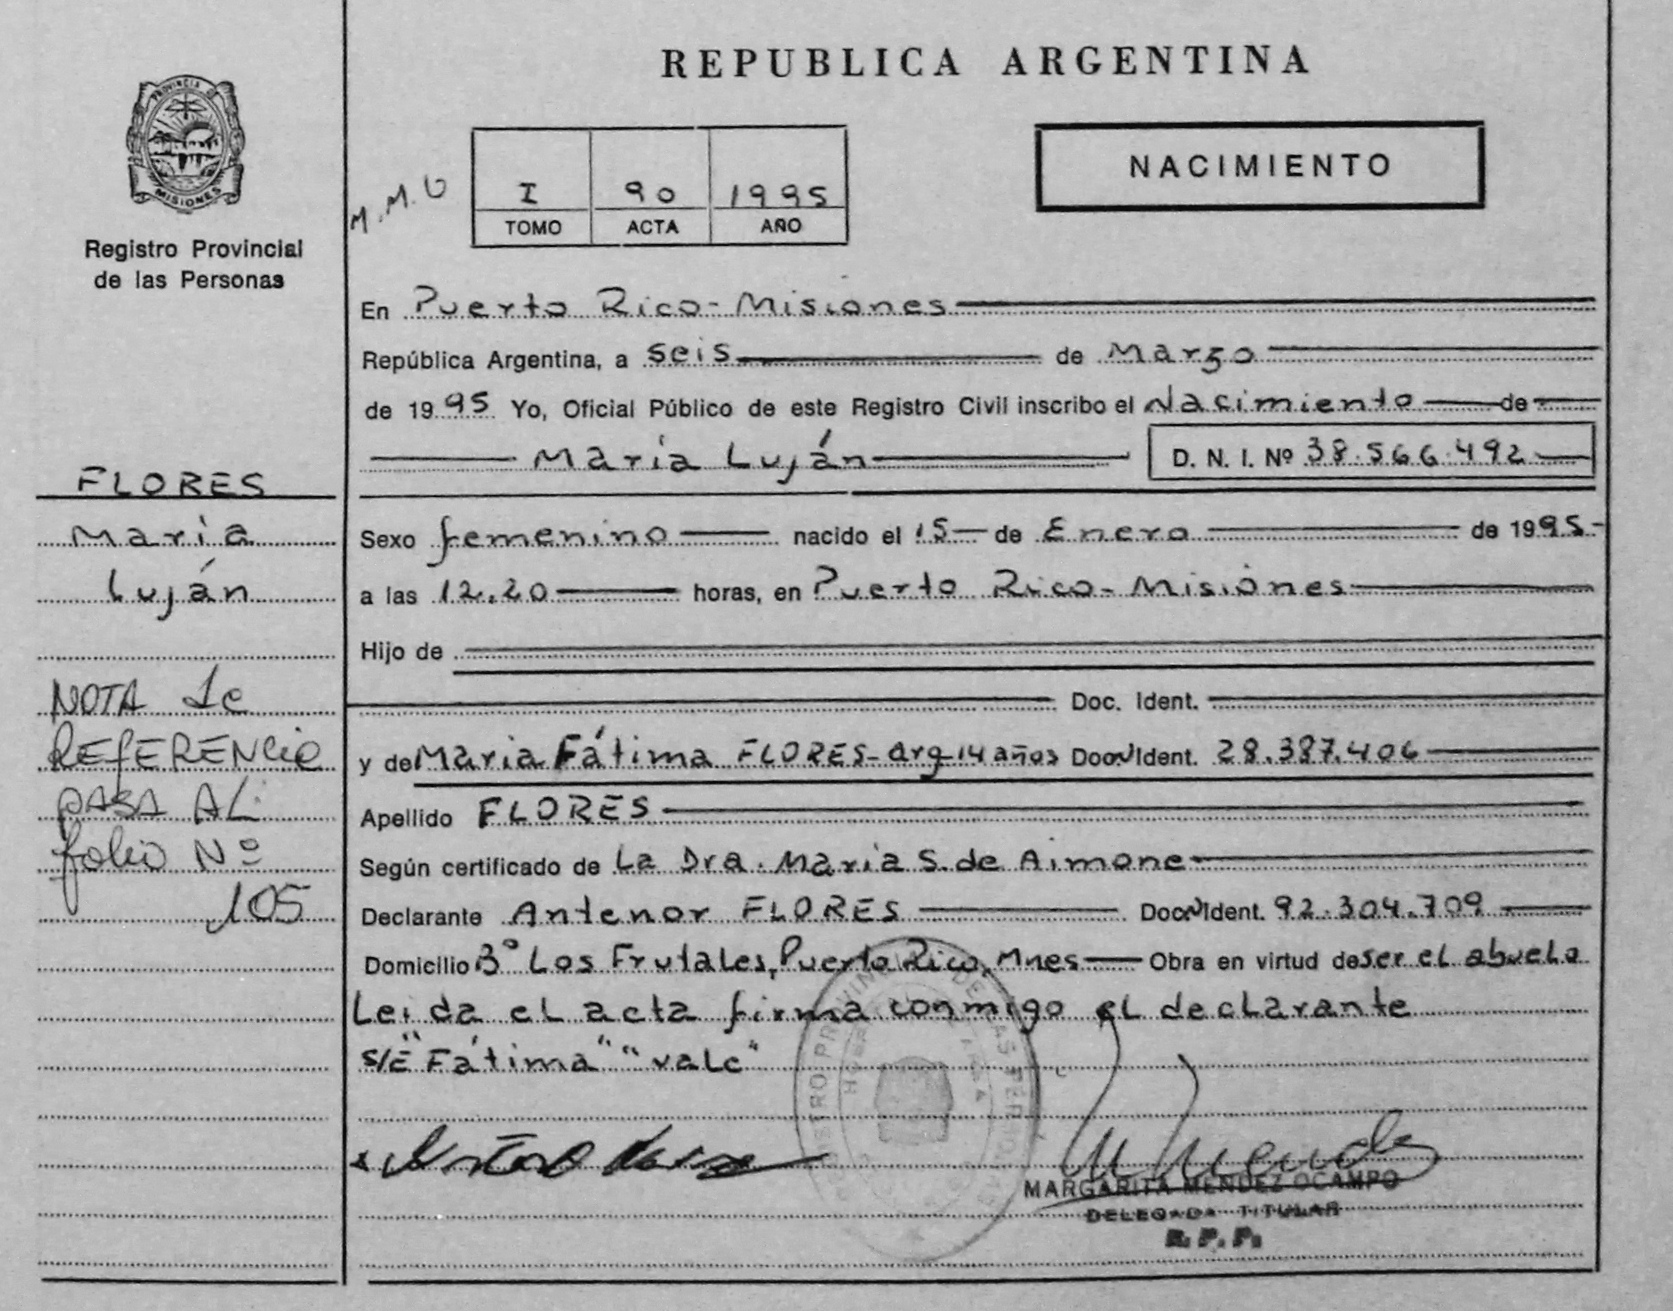 REPUBLICA ARGENTINA
PROVINCIA DE
MISIONES
Registro Provincial
de las Personas
M.M.O
I 90 1995
TOMO ACTA AÑO
NACIMIENTO
En Puerto Rico-Misiones
República Argentina, a seis de Marzo
de 1995 Yo, Oficial Público de este Registro Civil inscribo el Nacimiento de
María Luján D. N. I. Nº 38.566.492
FLORES
María
Luján
Sexo femenino nacido el 15 de Enero de 1995
a las 12.20 horas, en Puerto Rico-Misiones
Hijo de
Doc. Ident.
y de Maria Fátima FLORES-arg 14 años Doc Ident. 28.387.406
Apellido FLORES
Según certificado de La Dra. Maria S. de Aimone
Declarante Antenor FLORES Doc Ident. 92.304.709
Domicilio Bº Los Frutales, Puerto Rico, Mnes Obra en virtud de ser el abuelo
Leida el acta firma conmigo el declarante
S/E "Fátima" "vale"
NOTA de
REFERENCIA
PASA AL
folio Nº
105
MARGARITA MENDEZ OCAMPO
DELEGADA TITULAR
R. P. P.